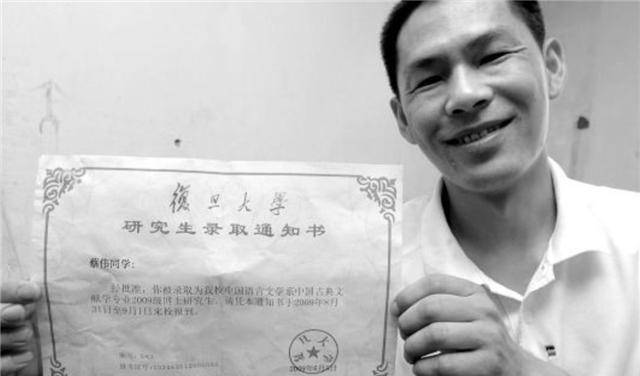 復旦大學
研究生录取通知书
蔡伟同学:
经批准,你被录取为我校中国语言文学系中国古典文
献学专业2009级博士研究生。请凭本通知书于2009年8月
31日至9月1日来校报到。